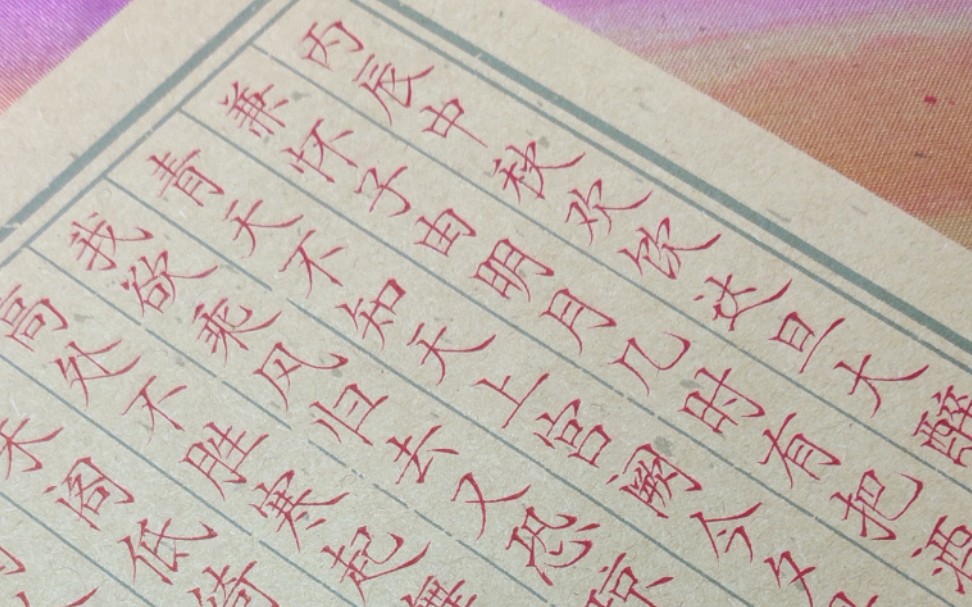 丙辰中秋欢饮达旦大醉
兼怀子由明月几时有把酒
青天不知天上宫阙今夕
我欲乘风归去又恐琼
高处不胜寒起舞
朱阁低绮